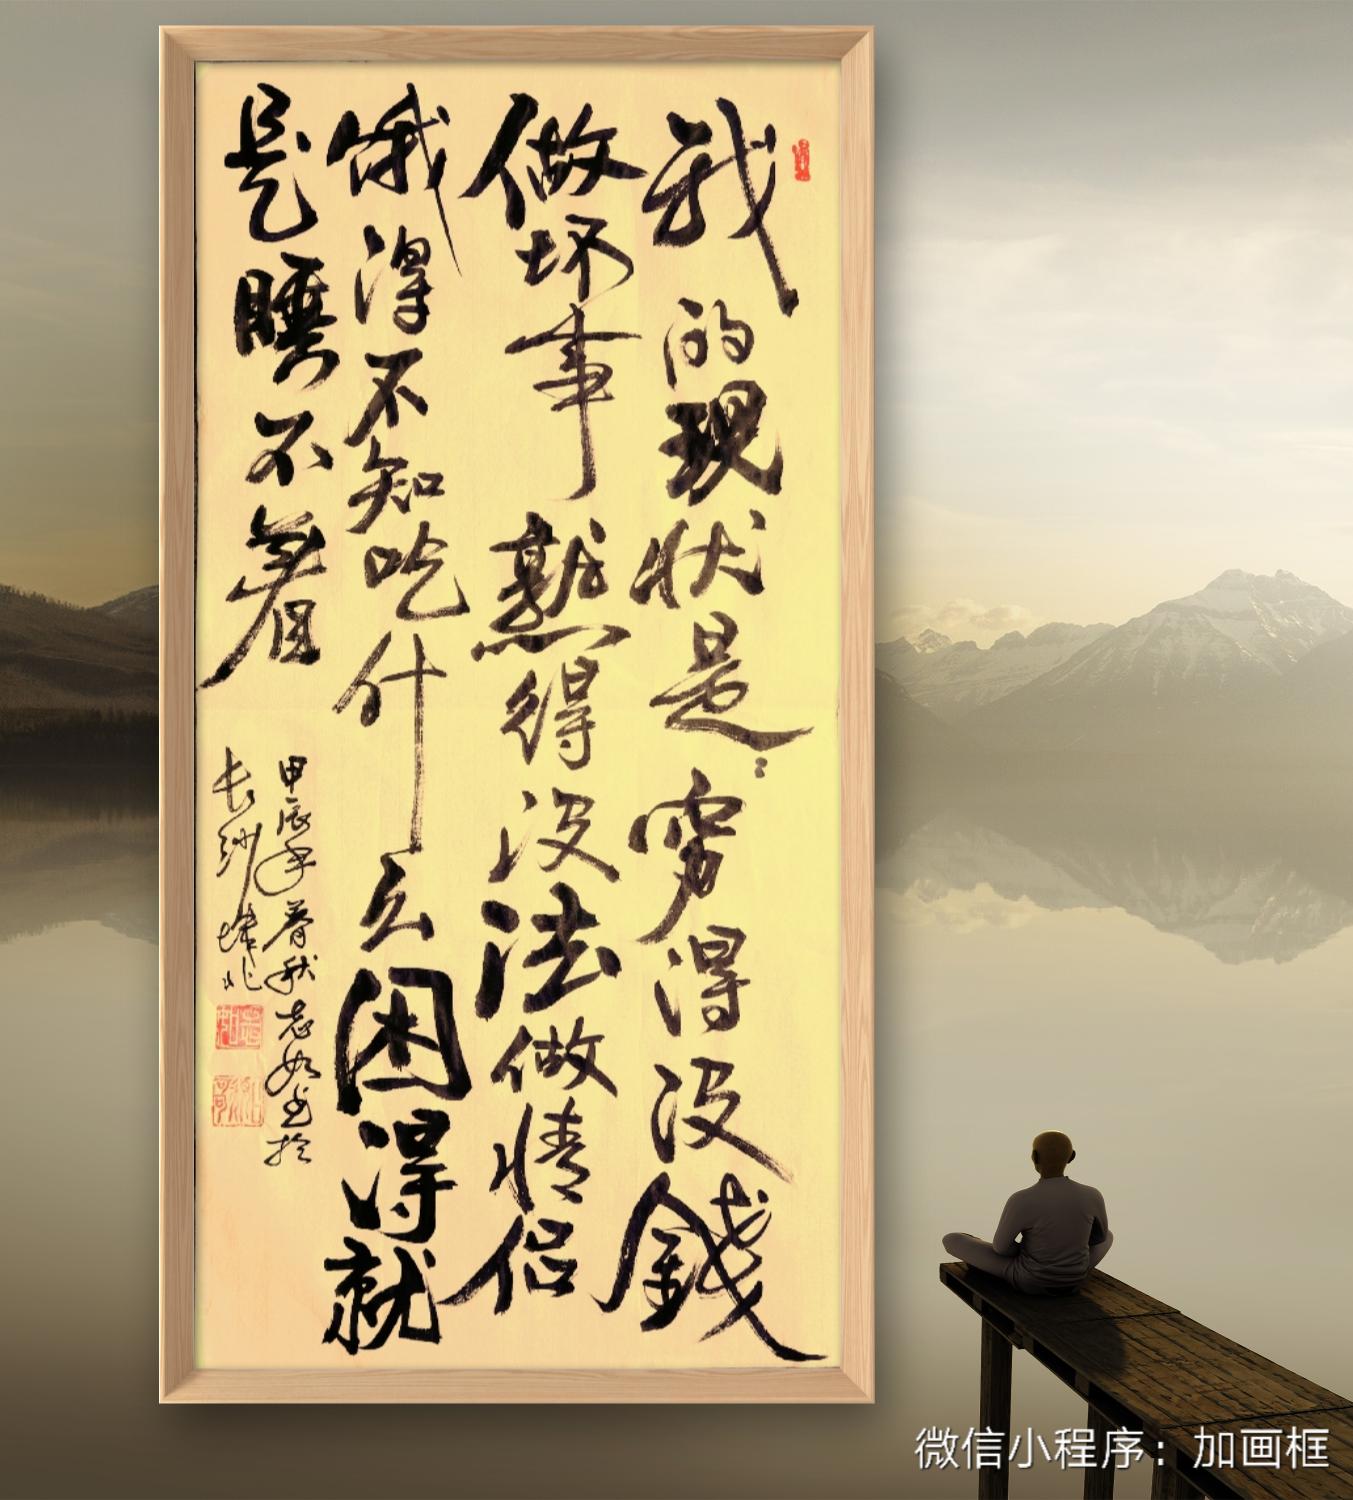 我的现状是：穷得没錢
做坏事熟得没法做情侣
饿得不知吃什么困得就
是睡不着
甲辰年暮秋志如书於
长沙城北
微信小程序：加画框